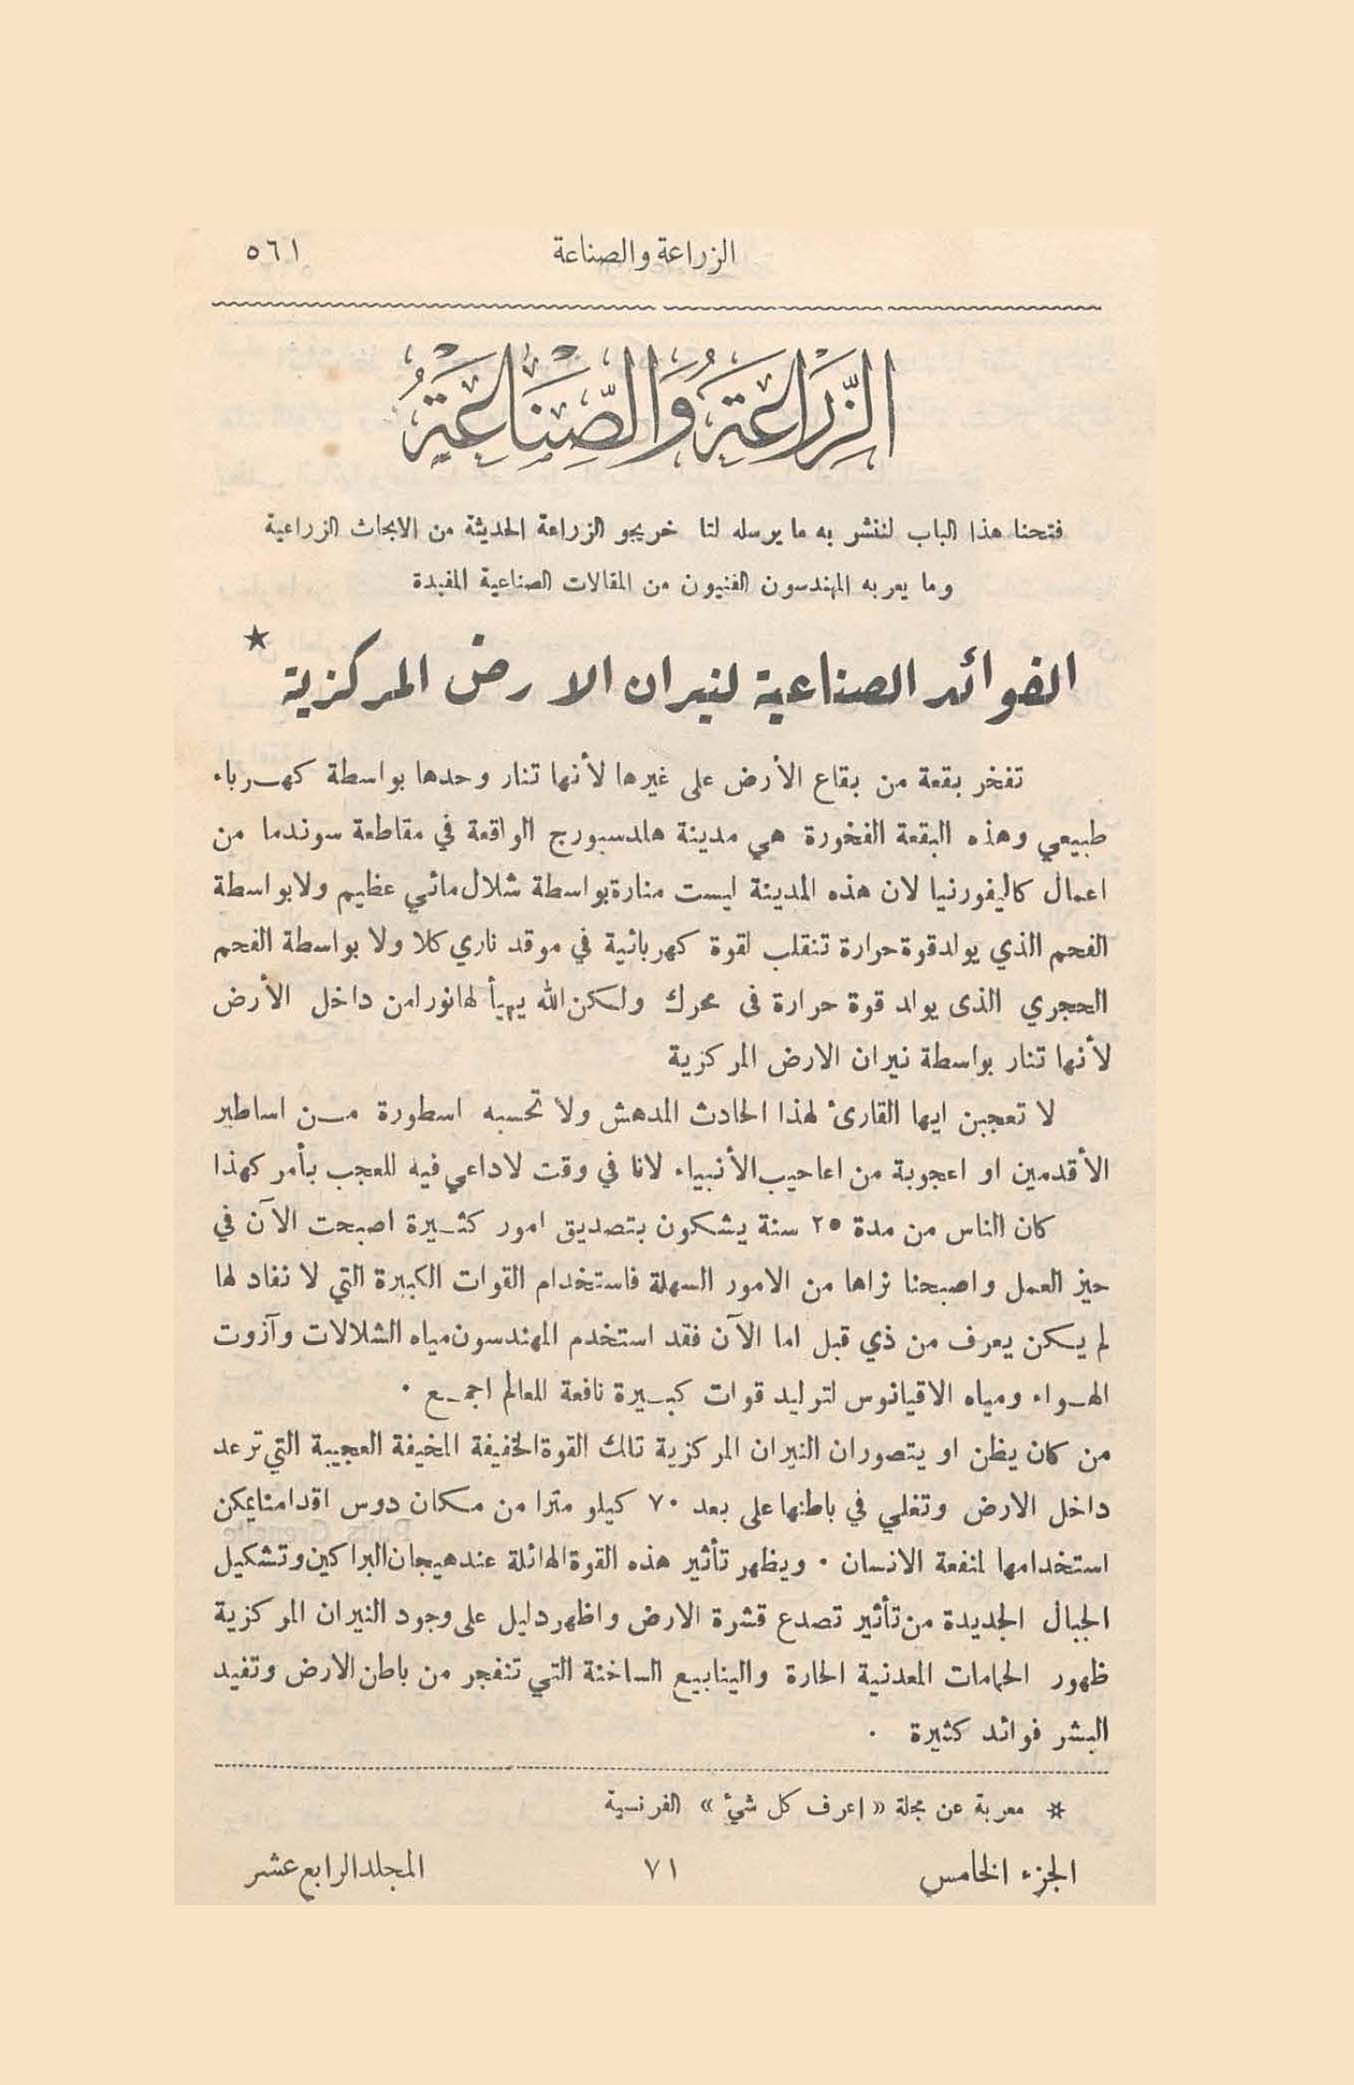 الزراعة والصناعة
٥٦١
الزِّرَاعَةُ وَالصِّنَاعَةُ
فتحنا هذا الباب لننشر به ما يرسله لنا خريجو الزراعة الحديثة من الابحاث الزراعية
وما يعربه المهندسون الفنيون من المقالات الصناعية المفيدة
الفوائد الصناعية لنيران الارض المركزية *
تفخر بقعة من بقاع الأرض على غيرها لأنها تنار وحدها بواسطة كهرباء
طبيعي وهذه البقعة الفخورة هي مدينة هلدسبورج الواقعة في مقاطعة سوندما من
اعمال كاليفورنيا لان هذه المدينة ليست منارة بواسطة شلال مائي عظيم ولا بواسطة
الفحم الذي يولد قوة حرارة تنقلب لقوة كهربائية في موقد ناري كلا ولا بواسطة الفحم
الحجري الذى يولد قوة حرارة فى محرك ولكن الله يهيأ لها نورا من داخل الأرض
لأنها تنار بواسطة نيران الارض المركزية
لا تعجبن ايها القارئ لهذا الحادث المدهش ولا تحسبه اسطورة من اساطير
الأقدمين او اعجوبة من اعاحيب الأنبياء لانا في وقت لا داعي فيه للعجب بأمر كهذا
كان الناس من مدة ٢٥ سنة يشكون بتصديق امور كثيرة اصبحت الآن في
حيز العمل واصبحنا نراها من الامور السهلة فاستخدام القوات الكبيرة التي لا نفاد لها
لم يكن يعرف من ذي قبل اما الآن فقد استخدم المهندسون مياه الشلالات وآزوت
الهواء ومياه الاقيانوس لتوليد قوات كبيرة نافعة للعالم اجمع .
من كان يظن او يتصور ان النيران المركزية تلك القوة الخفيفة المخيفة العجيبة التي ترعد
داخل الارض وتغلي في باطنها على بعد ٧٠ كيلو مترا من مكان دوس اقدامنا يمكن
استخدامها لمنفعة الانسان . ويظهر تأثير هذه القوة الهائلة عند هيجان البراكين وتشكيل
الجبال الجديدة من تأثير تصدع قشرة الارض واظهر دليل على وجود النيران المركزية
ظهور الحمامات المعدنية الحارة والينابيع الساخنة التي تنفجر من باطن الارض وتفيد
البشر فوائد كثيرة .
* معربة عن مجلة « اعرف كل شئ » الفرنسية
الجزء الخامس ٧١ المجلد الرابع عشر